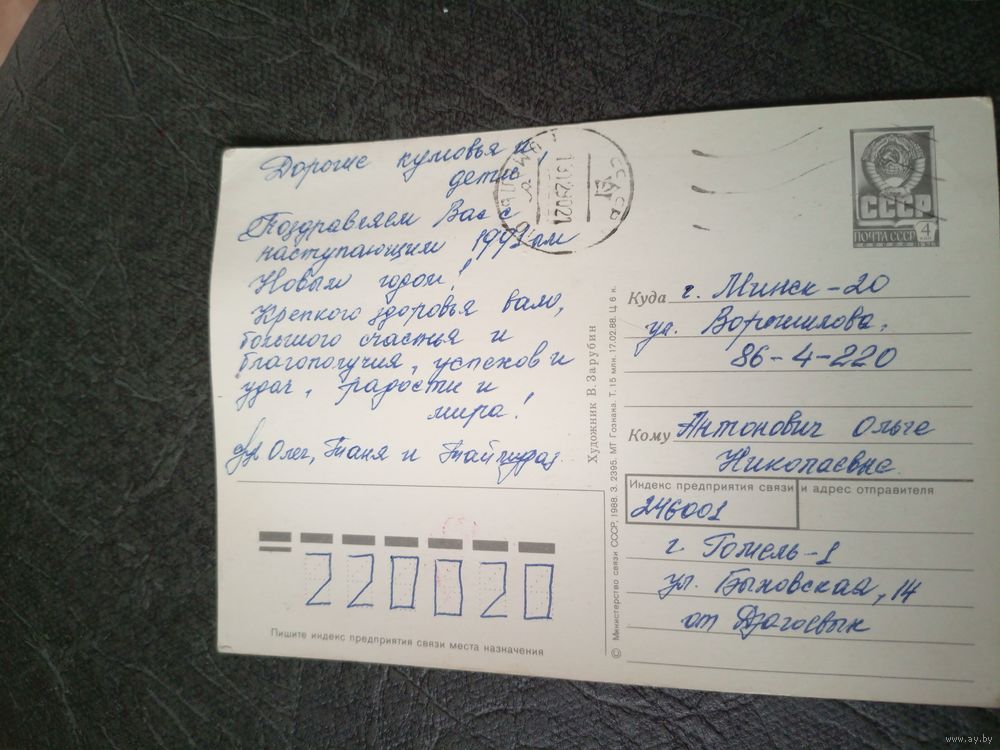 Дорогие кумовья и
дети,
Поздравляем Вас с
наступающим 1991ым
Новым годом!
Крепкого здоровья вам,
большого счастья и
благополучия, успехов и
удач, радости и
мира!
Олег, Таня и
Художник В. Зарубин
© Министерство связи СССР, 1988. З. 2395. МТ Гознака. Т. 15 млн. 17.02.88. Ц. 6 к.
СССР
ПОЧТА СССР 4
Куда г. Минск-20
ул. Ворошилова,
86-4-220
Кому Антонович Ольге
Николаевне
Индекс предприятия связи и адрес отправителя
246001
г. Гомель-1
ул. Быховская, 14
от
220020
Пишите индекс предприятия связи места назначения
www.ay.by